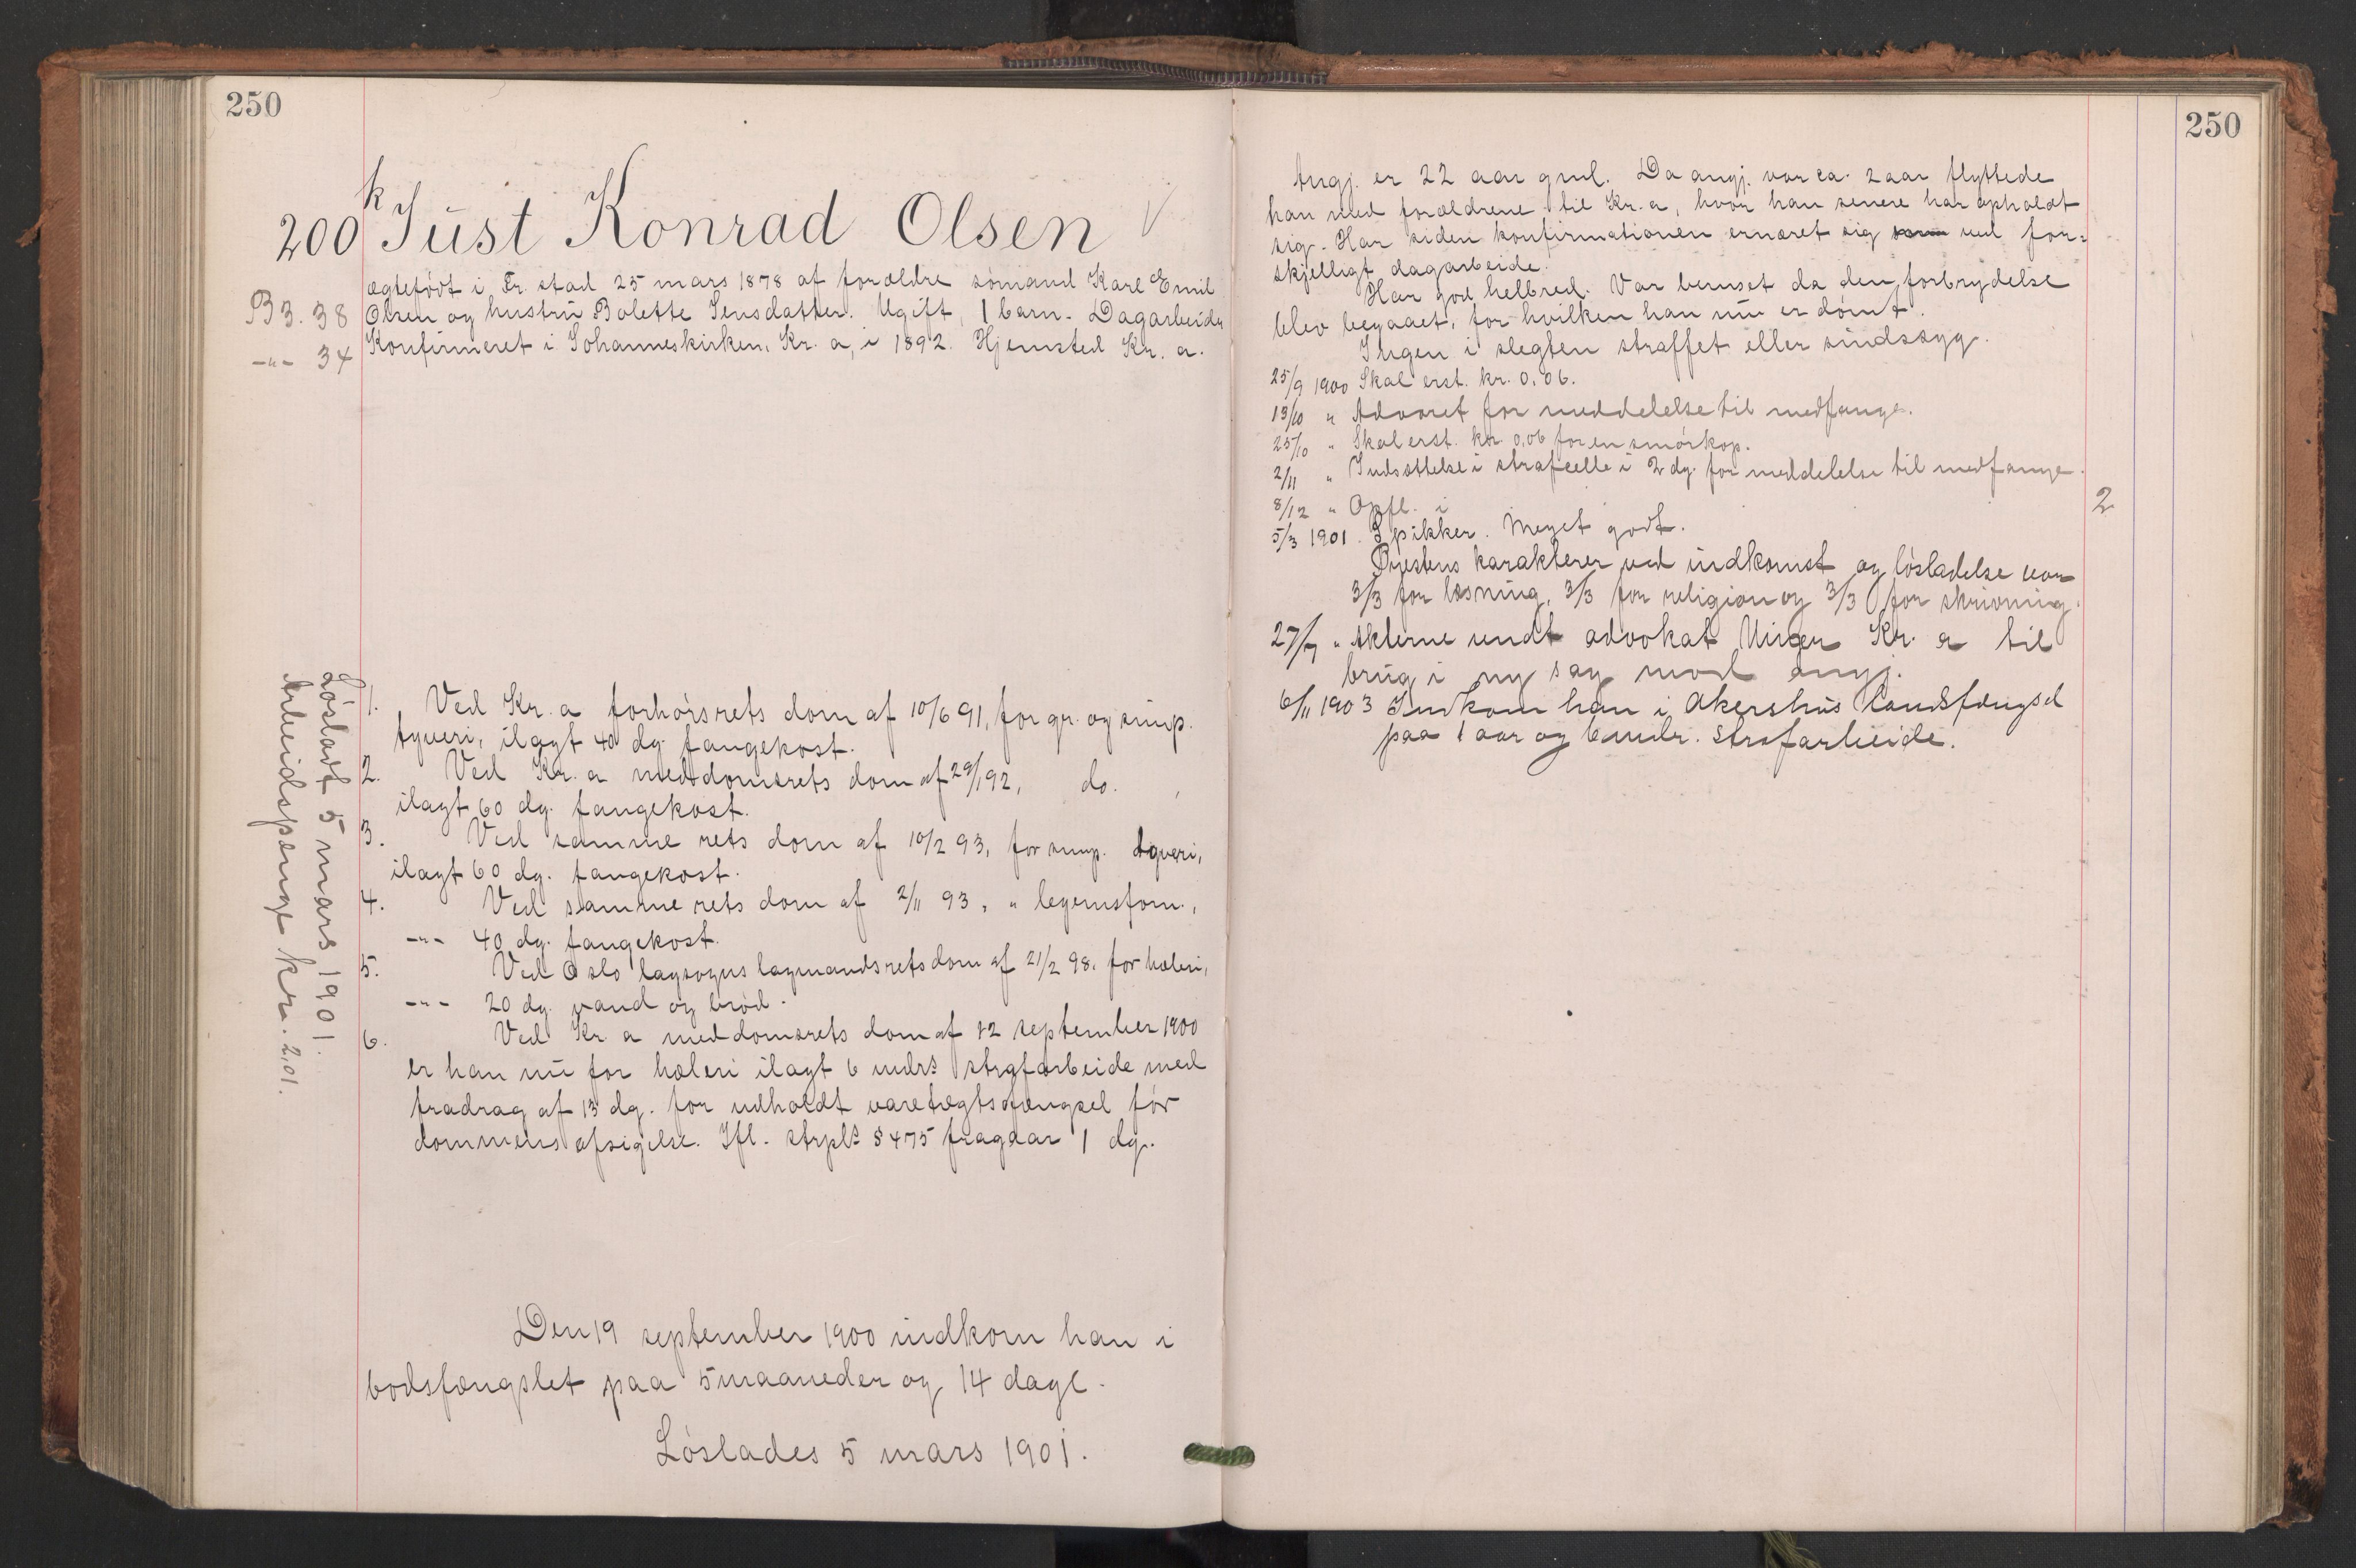 250
k
200 Just Konrad Olsen V
ægtefödt i Fr.stad 25 mars 1878 af forældre sömand Karl Emil
B3. 38 Olsen og hustru Bolette Jensdatter. Ugift, 1 barn. Dagarbeider
-"- 34 Konfirmeret i Johanneskirken, Kr.a, i 1892. Hjemsted Kr.a.
1. Ved Kr.a forhörsrets dom af 10/6 91, for gr. og simp.
tyveri, ilagt 40 dg. fangekost.
2. Ved Kr.a meddomsrets dom af 29/1 92, do.,
ilagt 60 dg. fangekost.
3. Ved samme rets dom af 10/2 93, for simp. tyveri,
ilagt 60 dg. fangekost.
4. Ved samme rets dom af 2/11 93, " legemsforn.,
-"- 40 dg. fangekost.
5. Ved Oslo lagsogns lagmandsrets dom af 21/2 98, for hæleri,
-"- 20 dg. vand og bröd.
6. Ved Kr.a meddomsrets dom af 12 september 1900
er han nu for hæleri ilagt 6 mdrs strafarbeide med
fradrag af 13 dg. for udholdt varetægtsfængsel för
dommens afsigelse. Ifl. strpls § 475 fragaar 1 dg.
Den 19 september 1900 indkom han i
bodsfængslet paa 5 maaneder og 14 dage.
Löslades 5 mars 1901.
Lösladt 5 mars 1901.
Arbeidspenge kr. 2,01.
250
Angj. er 22 aar gml. Da angj. var ca. 2 aar flyttede
han med forældrene til Kr.a, hvor han senere har opholdt
sig. Har siden konfirmationen ernæret sig som ved for=
skjelligt dagarbeide.
Har god helbred. Var beruset da den forbrydelse
blev begaaet, for hvilken han nu er dömt.
Ingen i slegten straffet eller sindssyg.
25/9 1900 Skal erst. kr. 0,06.
13/10 " Advaret for meddelelse til medfange.
25/10 " Skal erst. kr. 0,06 for en smörkop.
2/11 " Indsættelse i strafcelle i 2 dg. for meddelelse til medfange.
8/12 " Opfl. i 2
5/3 1901. Spikker. Meget godt.
Prestens karakterer ved indkomst og lösladelse var
3/3 for læsning, 3/3 for religion og 3/3 for skrivning.
27/7 " Akterne sendt advokat Kr.a til
brug i ny sag mod angj.
6/11 1903 Indkom han i Akershus Landsfængsel
paa 1 aar og 6 mdr. Strafarbeide.